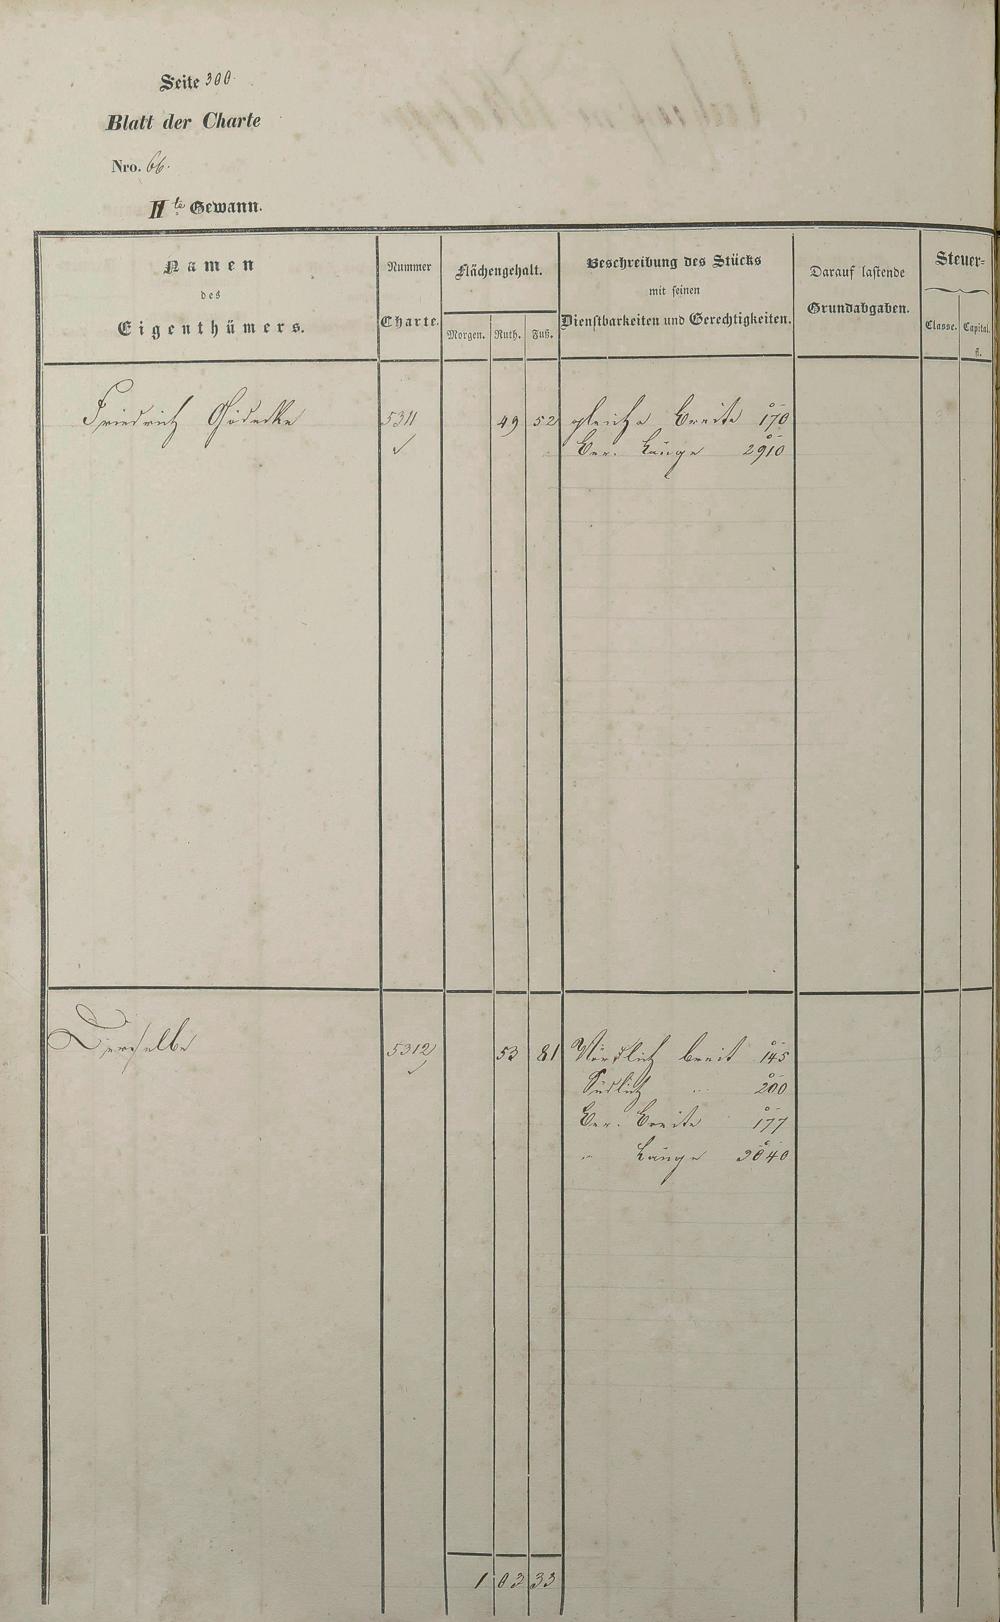 Seite 300.
Blatt der Charte
Nro. 66.
II te Gewann.
Namen
des
Eigenthümers.
Nummer
Charte.
Flächengehalt.
Morgen. Ruth. Fuß.
Beschreibung des Stücks
mit seinen
Dienstbarkeiten und Gerechtigkeiten.
Darauf lastende
Grundabgaben.
Steuer-
Classe. Capital.
fl.
Friedrich Gödecke 5311 49 52 gleiche Breite 170
Ber. Länge 2910
Derselbe 5312 53 81 Nördlich breit 145
Südlich " 200
Ber. Breite 177
" Länge 3040
1 03 33